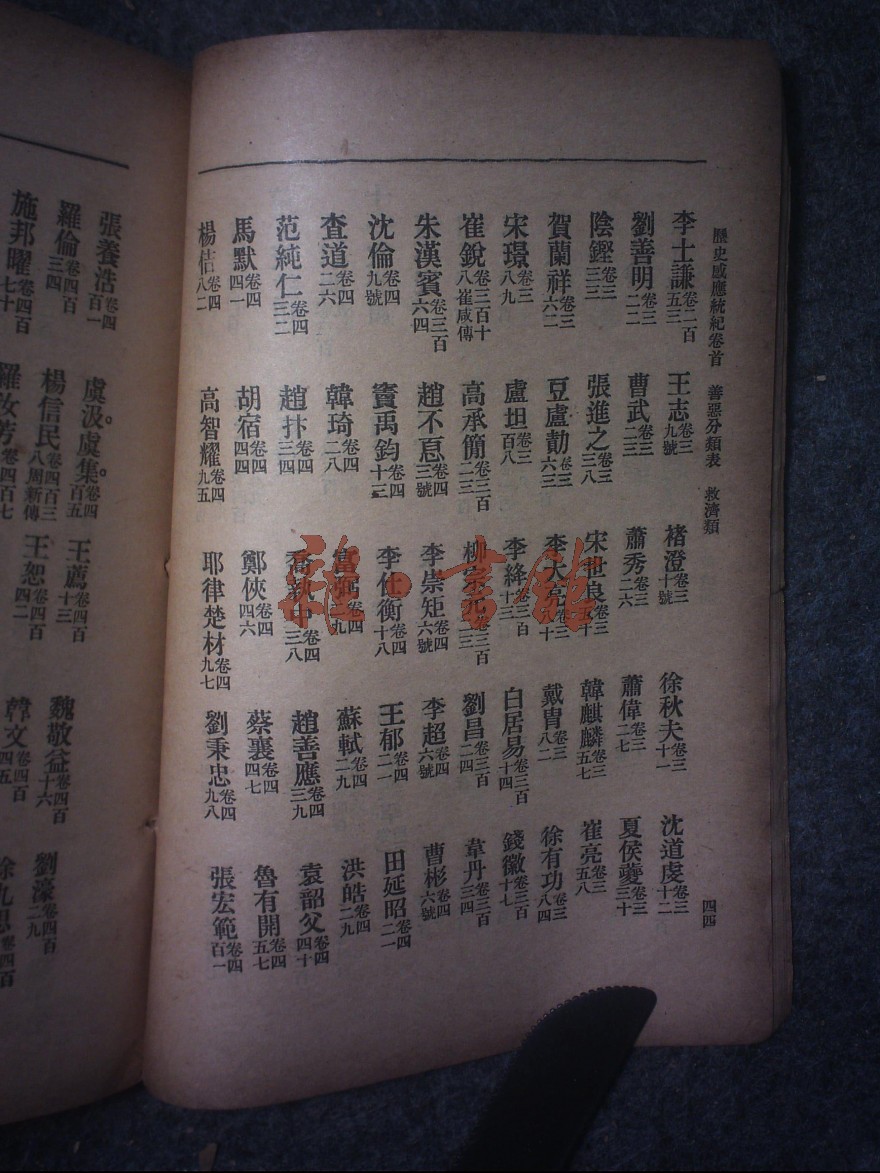 歷史感應統紀卷首 善惡分類表 救濟類 四四
李士謙卷二百五三 王志卷三九號 褚澄卷三十號 徐秋夫卷三十一 沈道虔卷三十二
劉善明卷三二二 曹武卷三二三 蕭秀卷三二六 蕭偉卷三二七 夏侯夔卷三三十
陰鏗卷三三三 張進之卷三三八 宋世良卷三五十 韓麒麟卷三五七 崔亮卷三五八
賀蘭祥卷三六二 豆盧勣卷三六三 李大亮卷三十 戴胄卷三八二 徐有功卷三八四
宋璟卷三八九 盧坦卷三百八 李絳卷三百十三 白居易卷三百十四 錢徽卷三百十七
崔銳卷三百十八崔咸傳 高承簡卷三百二三 柳宗元卷三百三三 劉昌卷三百二四 韋丹卷三百三四
朱漢賓卷三百六四 趙不悳卷四三號 李崇矩卷四六號 李超卷四六號 曹彬卷四六號
沈倫卷四九號 竇禹鈞卷四十三 李仕衡卷四十八 王郁卷四二一 田延昭卷四二一
查道卷四二六 韓琦卷四二八 富弼卷四九 蘇軾卷四二九 洪皓卷四二九
范純仁卷四三二 趙抃卷四三四 喬執中卷四三八 趙善應卷四三九 袁韶父卷四四十
馬默卷四四一 胡宿卷四四四 鄭俠卷四四六 蔡襄卷四四七 魯有開卷四五七
楊佶卷四八二 高智耀卷四九五 耶律楚材卷四九七 劉秉忠卷四九八 張宏範卷四百一
張養浩卷四百一 虞汲。虞集。卷四百五 王薦卷四百十三 魏敬益卷四百十六 劉濠卷四百二九
羅倫卷四百三四 楊信民卷四百三八周新傳 王恕卷四百四二 韓文卷四百四五
施邦曜卷四百七十 羅汝芳卷四百七
雜·書館